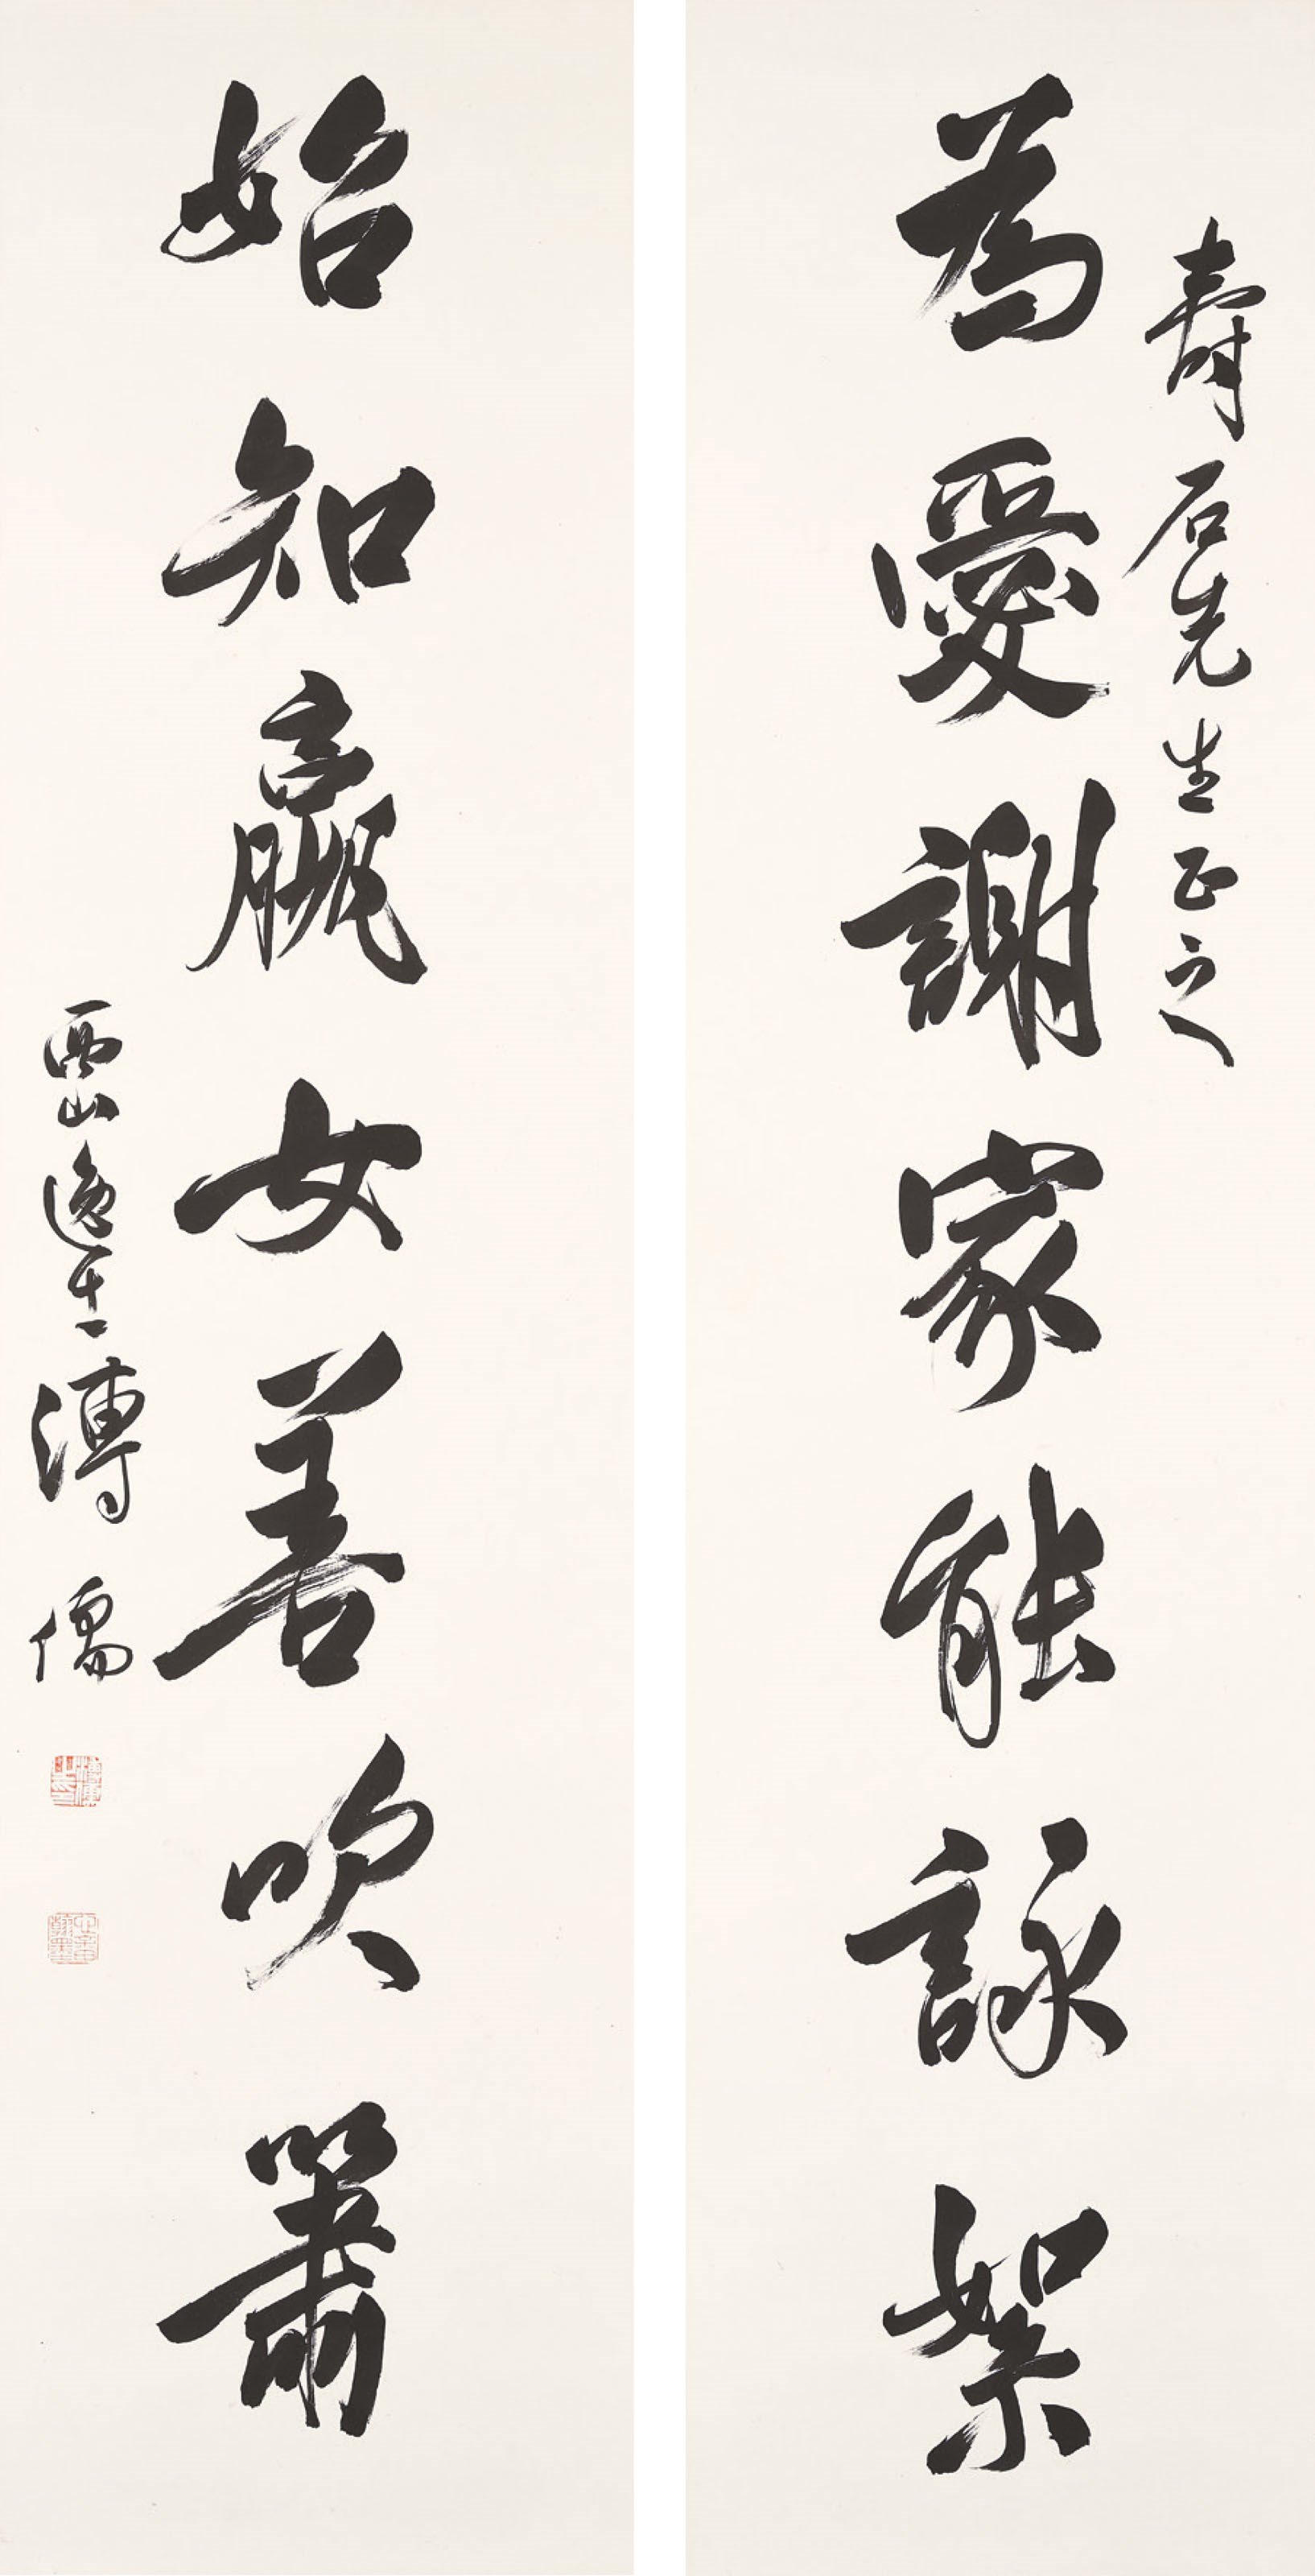 壽石先生正之
為愛謝家能詠絮
始知嬴女善吹簫
西山逸士溥儒